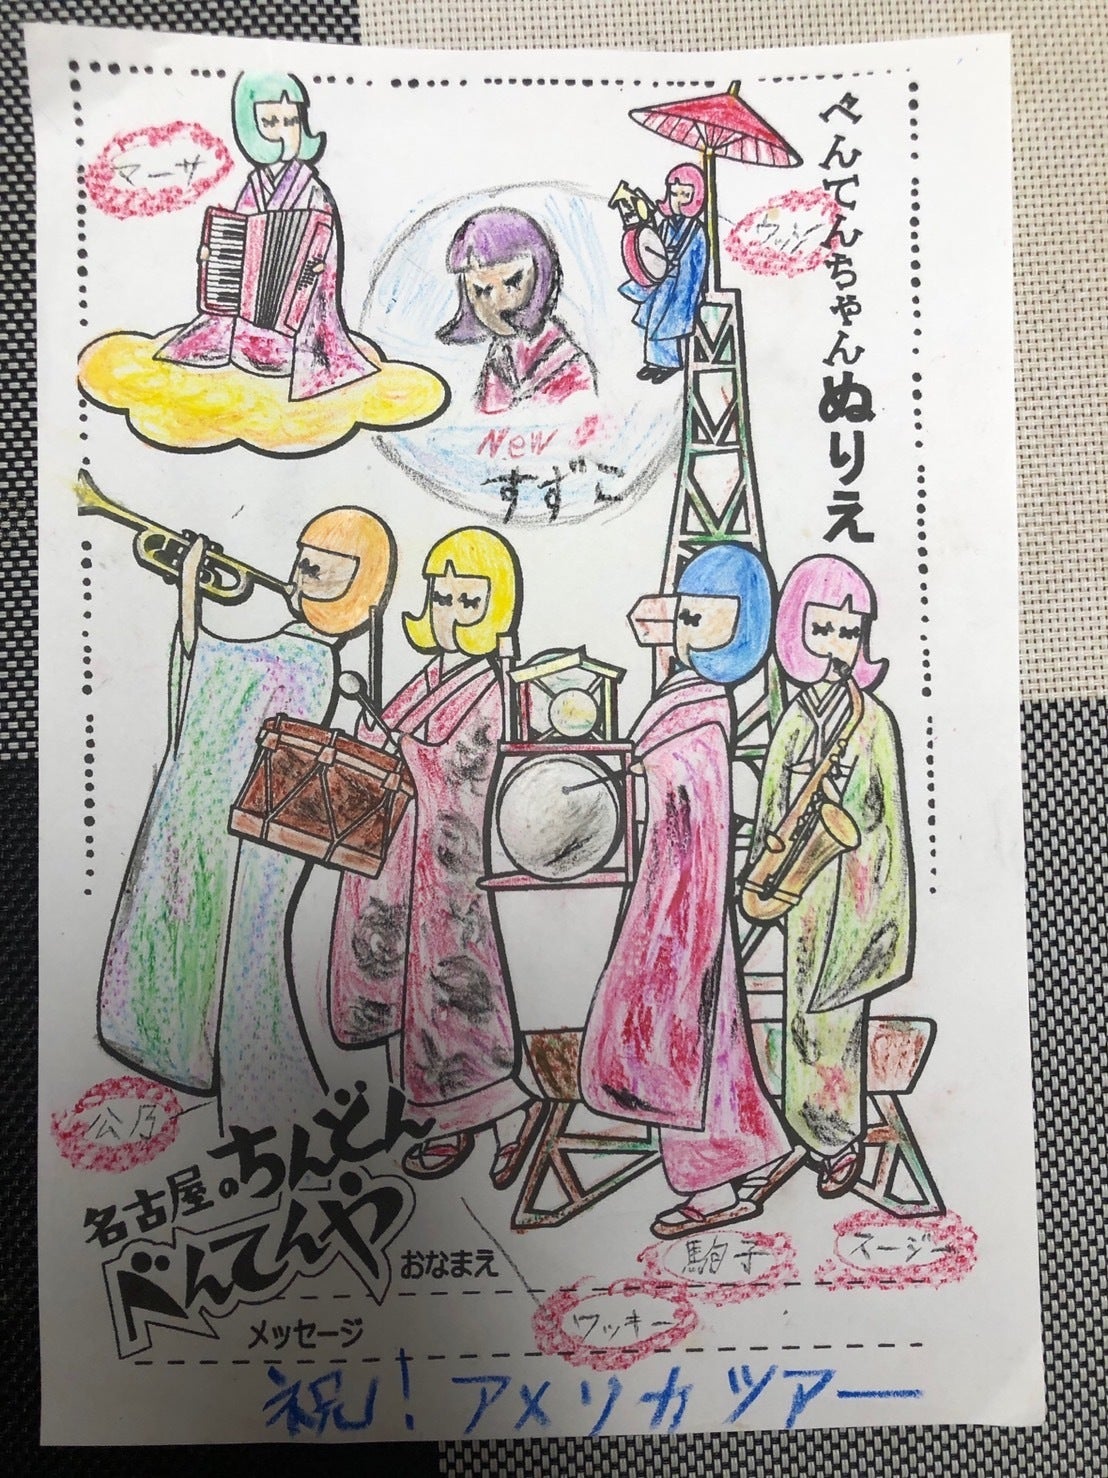 べんてんちゃんぬりえ
マーサ
ウッジ
New
すずこ
公乃
名古屋のちんどん
べんてんや
おなまえ
駒子
スージー
ワッキー
メッセージ
祝!アメリカツアー